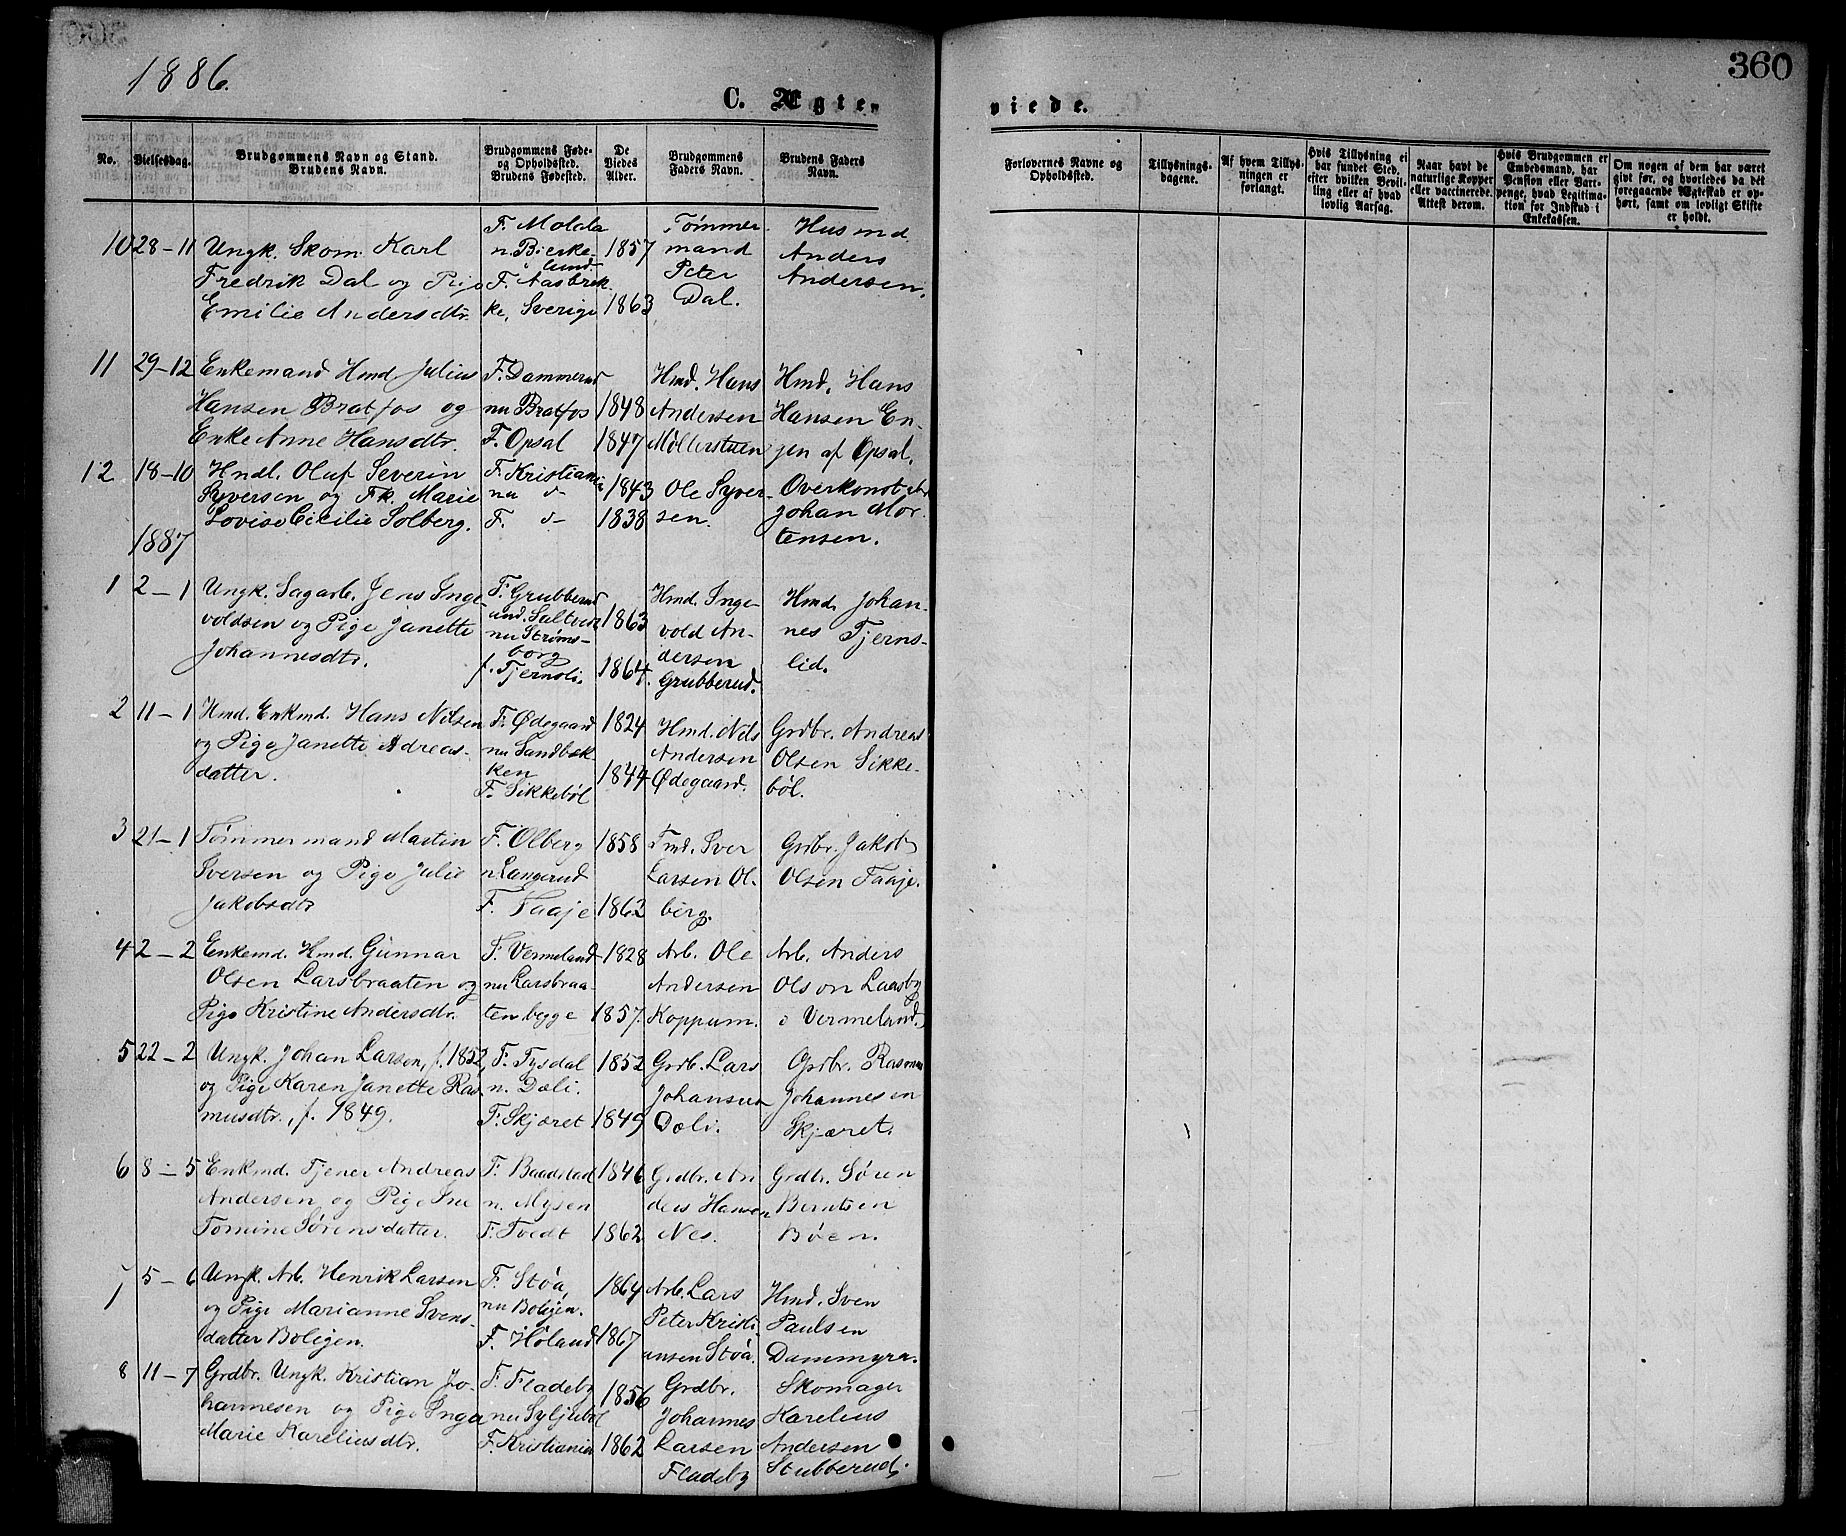 1886.
360
C. Ægte-
viede.
No.
Vielsesdag.
Brudgommens Navn og Stand.
Brudens Navn.
Brudgommens Føde-
og Opholdssted.
Brudens Fødested.
De
Viedes
Alder.
Brudgommens
Faders Navn.
Brudens Faders
Navn.
Forlovernes Navne og
Opholdssted.
Tillysnings-
dagene.
Af hvem Tillys-
ningen er
forlangt.
Hvis Tillysning ei
har fundet Sted,
efter hvilken Bevil-
ling eller af hvad
lovlig Aarsag.
Naar havt de
naturlige Kopper
eller vaccinerede.
Attest derom.
Hvis Brudgommen er
Embedsmand, har
Pension eller Vart-
penge, hvad Legitima-
tion for Indskud i
Enkekassen.
Om nogen af dem har været
givt før, og hvorledes da det
foregaaende Ægteskab er op-
hørt, samt om lovligt Skifte
er holdt.
10 28-11
Ungk. Skom. Karl
Fredrik Dal og Pige
Emilie Andersdtr.
F. Molda
n. Bierke-
lund
F. Aasbrek-
ke, Sverige
1857
1863
Tømmer-
mand
Peter
Dal.
Husmd.
Anders
Andersen.
11 29-12
Enkemand Hmd Julius
Hansen Bratfos og
Enke Anne Hansdtr.
F. Dammerud
nu Bratfos
F. Opsal
1848
1847
Hmd. Hans
Andersen
Møllerstuen
Hmd. Hans
Hansen En-
gen af Opsal.
12 18-10
Hndl. Oluf Severin
Syversen og Frk. Marie
Lovise Cicilie Solberg.
F. Kristiania
nu d-
F. d-
1843
1838
Ole Syver-
sen.
Overkonst.
Johan Mor-
tensen.
1887
1 2-1
Ungk. Sagarb. Jens Inge-
voldsen og Pige Janette
Johannesdtr.
F. Grubberud
und.
nu Strøms-
borg
f. Tjernsli.
1863
1864.
Hmd. Inge-
vold An-
dersen
Grubberud.
Hmd. Johan-
nes Tjerns-
lid.
2 11-1
Hmd. Enkmd. Hans Nilsen
og Pige Janette Adreas-
datter.
F. Ødegaard
nu Sandbæk-
ken
F. Sikkebøl
1824
1844
Hmd. Nils
Andersen
Ødegaard.
Grdbr. Andreas
Olsen Sikke-
bøl.
3 21-1
Tømmermand Martin
Iversen og Pige Julie
Jakobsdtr
F. Olberg
n. Langerud
F. Taaje
1858
1862
Tmd. Iver
Larsen Ol-
berg.
Grdbr. Jakob
Olsen Taaje.
4 2-2
Enkemd. Hmd. Gunnar
Olsen Larsbraaten og
Pige Kristine Andersdtr.
F. Vermeland
nu Larsbraa-
ten begge
1828
1857.
Arb. Ole
Andersen
Koppum.
Arb. Anders
Olson Laasby
i Vermeland.
5 22-2
Ungk. Johan Larsen, f. 1852,
og Pige Karen Janette Ras-
musdtr., f. 1849.
F. Tysdal
n. Dæli.
F. Skjæret
1852
1849
Grdb. Lars
Johansen
Dæli.
Grdbr. Rasmus
Johannesen
Skjæret.
6 8-5
Enkmd. Tjener Andreas
Andersen og Pige Ine
Tomine Sørensdatter.
F. Baadstad
n. Mysen
F. Tvedt
1846
1862
Grdbr. An
ders Hansen
Nes.
Grdbr. Søren
Berntsen
Bøen.
7 5-6
Ungk. Arb. Henrik Larsen
og Pige Marianne Svens-
datter Boligen.
F. Støa,
nu Boligen.
F. Høland
1864
1867
Arb. Lars
Peter Kristi-
ansen Støa.
Hmd. Sven
Paulsen
Dammyra.
8 11-7
Grdbr. Ungk. Kristian Jo-
hannesen og Pige Inga
Marie Kareliusdtr.
F. Fladeby
nu Syljebøl
F. Kristiania
1856
1862
Grdbr.
Johannes
Larsen
Fladeby
Skomager
Karelius
Andersen
Stubberud.